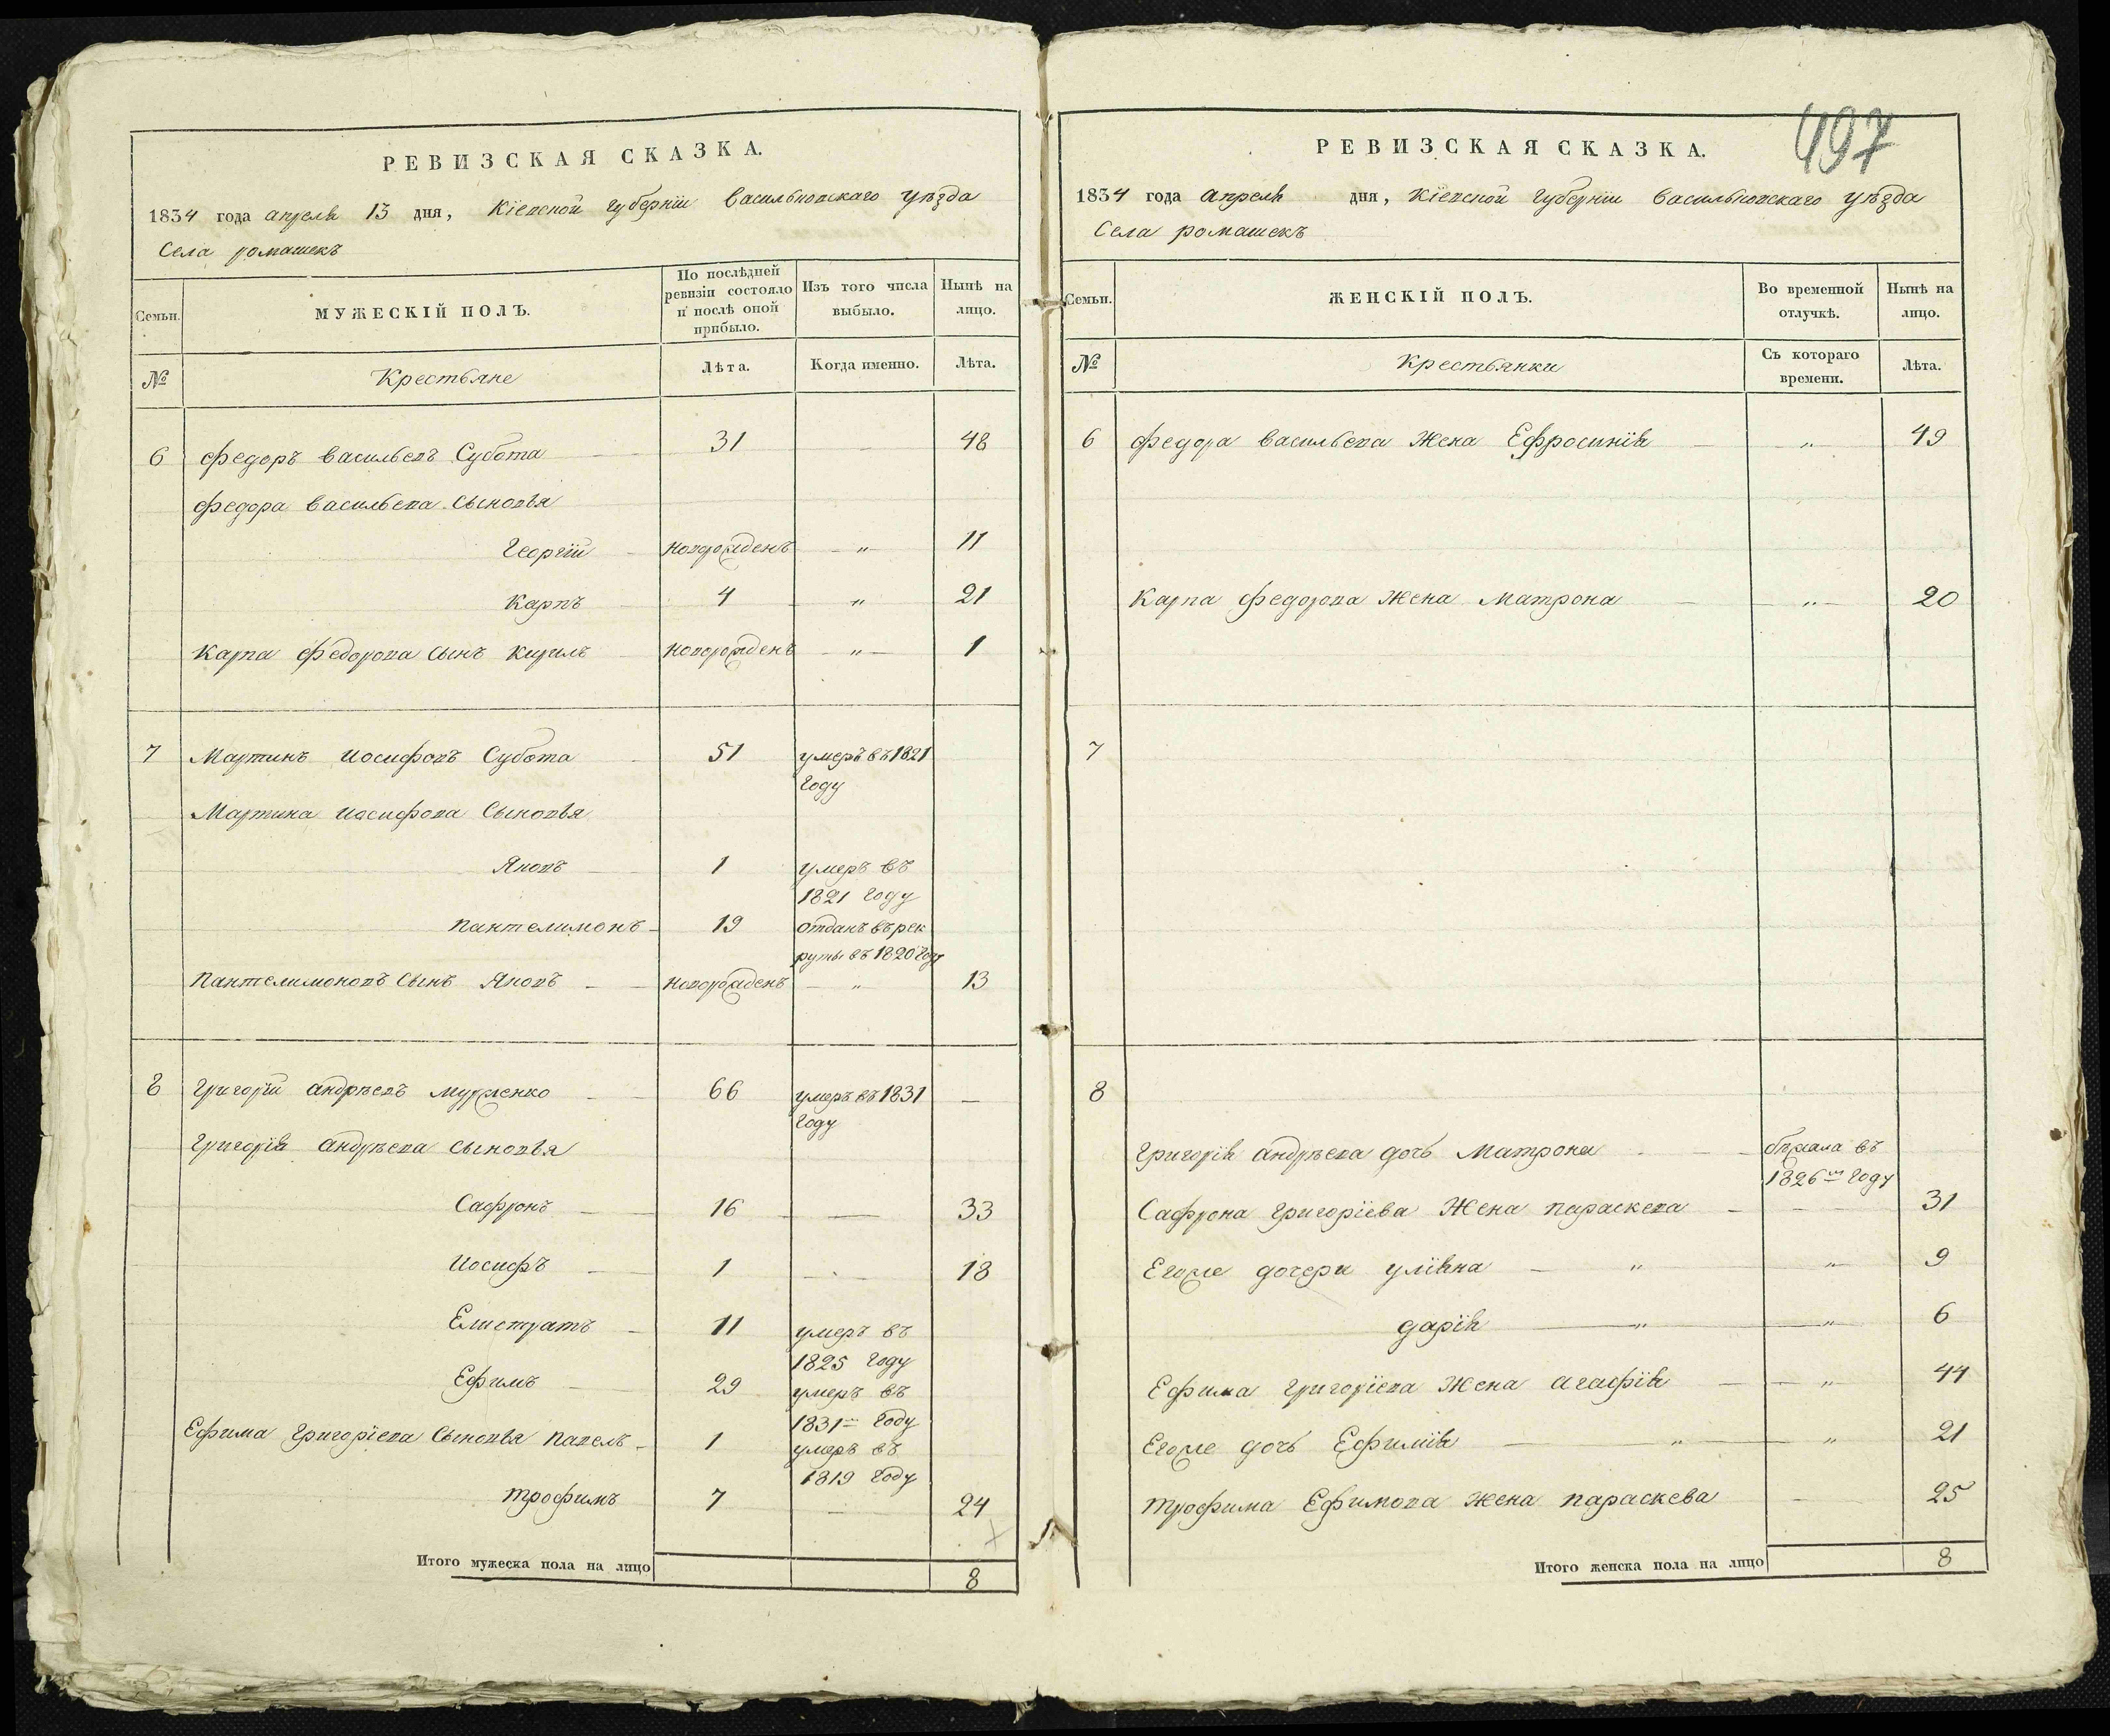 РЕВИЗСКАЯ СКАЗКА.
1834 года апреля 13 дня, Кіевской губерніи Васильковскаго уѣзда
Села ромашекъ
Семьи.
МУЖЕСКІЙ ПОЛЪ.
По послѣдней ревизіи состояло и послѣ оной прибыло.
Изъ того числа выбыло.
Нынѣ на лицо.
№
Крестьяне
Лѣта.
Когда именно.
Лѣта.
6 Федоръ Васильевъ Субота 31 — 48
Федора Васильева Сыновья
Георгій новорожденъ — " — 11
Карпъ 4 — " — 21
Карпа Федорова сынъ Кирилъ новорожденъ — " — 1
7 Мартинъ Иосифовъ Субота 51 умеръ въ 1821
году
Мартина Иосифова Сыновья
Яковъ 1 умеръ въ
1821 году
Пантелимонъ 19 отданъ въ рек
руты въ 1820 году
Пантелимоновъ Сынъ Яковъ новорожденъ — " — 13
8 Григорій Андрѣевъ Мурженко 66 умеръ въ 1831 —
году
Григорія Андрѣева сыновья
Сафронъ 16 — 33
Иосифъ 1 — 18
Елистратъ 11 умеръ въ
1825 году
Ефимъ 29 умеръ въ
1831м году
Ефима Григоріева Сыновья Павелъ 1 умеръ въ
1819 году
Трофимъ 7 — 24
Итого мужеска пола на лицо 8
497
РЕВИЗСКАЯ СКАЗКА.
1834 года Апреля дня, Кіевской губерніи Васильковскаго уѣзда
Села ромашекъ
Семьи.
ЖЕНСКІЙ ПОЛЪ.
Во временной отлучкѣ.
Нынѣ на лицо.
№
Крестьянки
Съ котораго времени.
Лѣта.
6 Федора Васильева Жена Ефросинія — " — 49
Карпа Федорова Жена Матрона — " — 20
7
8
Григорія Андрѣева дочь Матрона — бѣжала въ
1826м году
Сафрона Григоріева Жена Параскева — 31
Егоже дочери Уліяна — " — " — 9
Дарія — " — " — 6
Ефима Григоріева Жена Агафія — " — 44
Егоже дочь Ефимія — " — " — 21
Трофима Ефимова жена Параскева — 25
Итого женска пола на лицо 8